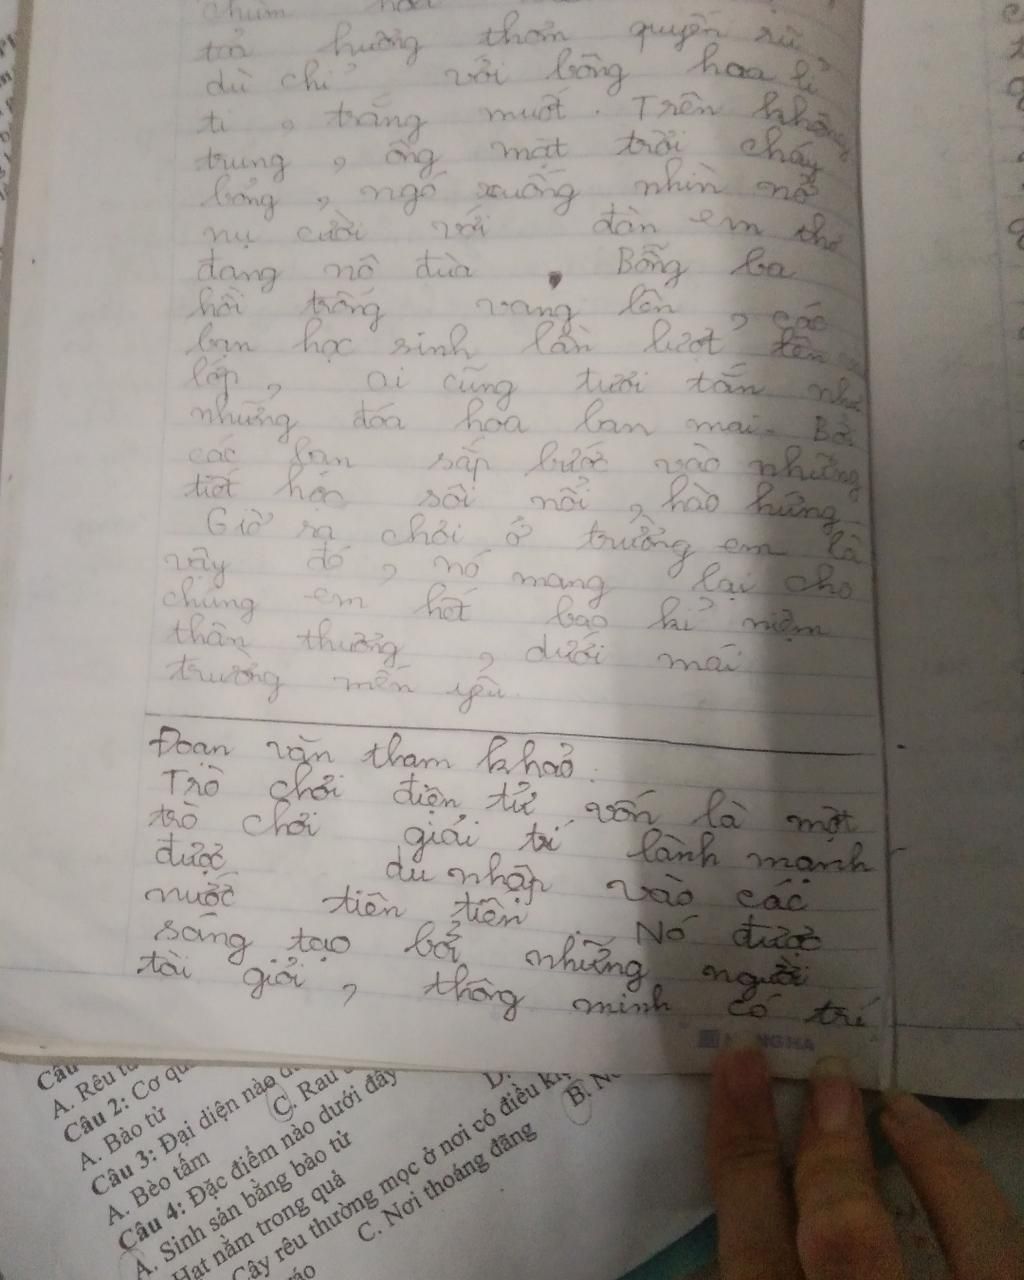 chùm hoa
toả hương thơm quyến rũ
dù chỉ với bông hoa li
ti, trắng muốt. Trên không
trung, ông mặt trời cháy
bỏng, ngó xuống nhìn nở
nụ cười với đàn em thơ
đang nô đùa. Bỗng ba
hồi trống vang lên, các
bạn học sinh lần lượt lên
lớp, ai cũng tươi tắn như
những đóa hoa ban mai. Bởi
các bạn sắp bước vào những
tiết học sôi nổi, hào hứng
Giờ ra chơi ở trường em là
vậy đó, nó mang lại cho
chúng em hết bao kỉ niệm
thân thương, dưới mái
trường mến yêu.
Đoạn văn tham khảo:
Trò chơi điện tử vốn là một
trò chơi giải trí lành mạnh
được du nhập vào các
nước tiên tiến. Nó được
sáng tạo bởi những người
tài giỏi, thông minh có trí
HỒNG HA
Câu
A. Rêu
Câu 2: Cơ qu
A. Bào tử
Câu 3: Đại diện nào d
C. Rau
A. Bèo tấm
Câu 4: Đặc điểm nào dưới đây
A. Sinh sản bằng bào tử
D.
B. N
Hạt nằm trong quả
Cây rêu thường mọc ở nơi có điều ki
C. Nơi thoáng đãng